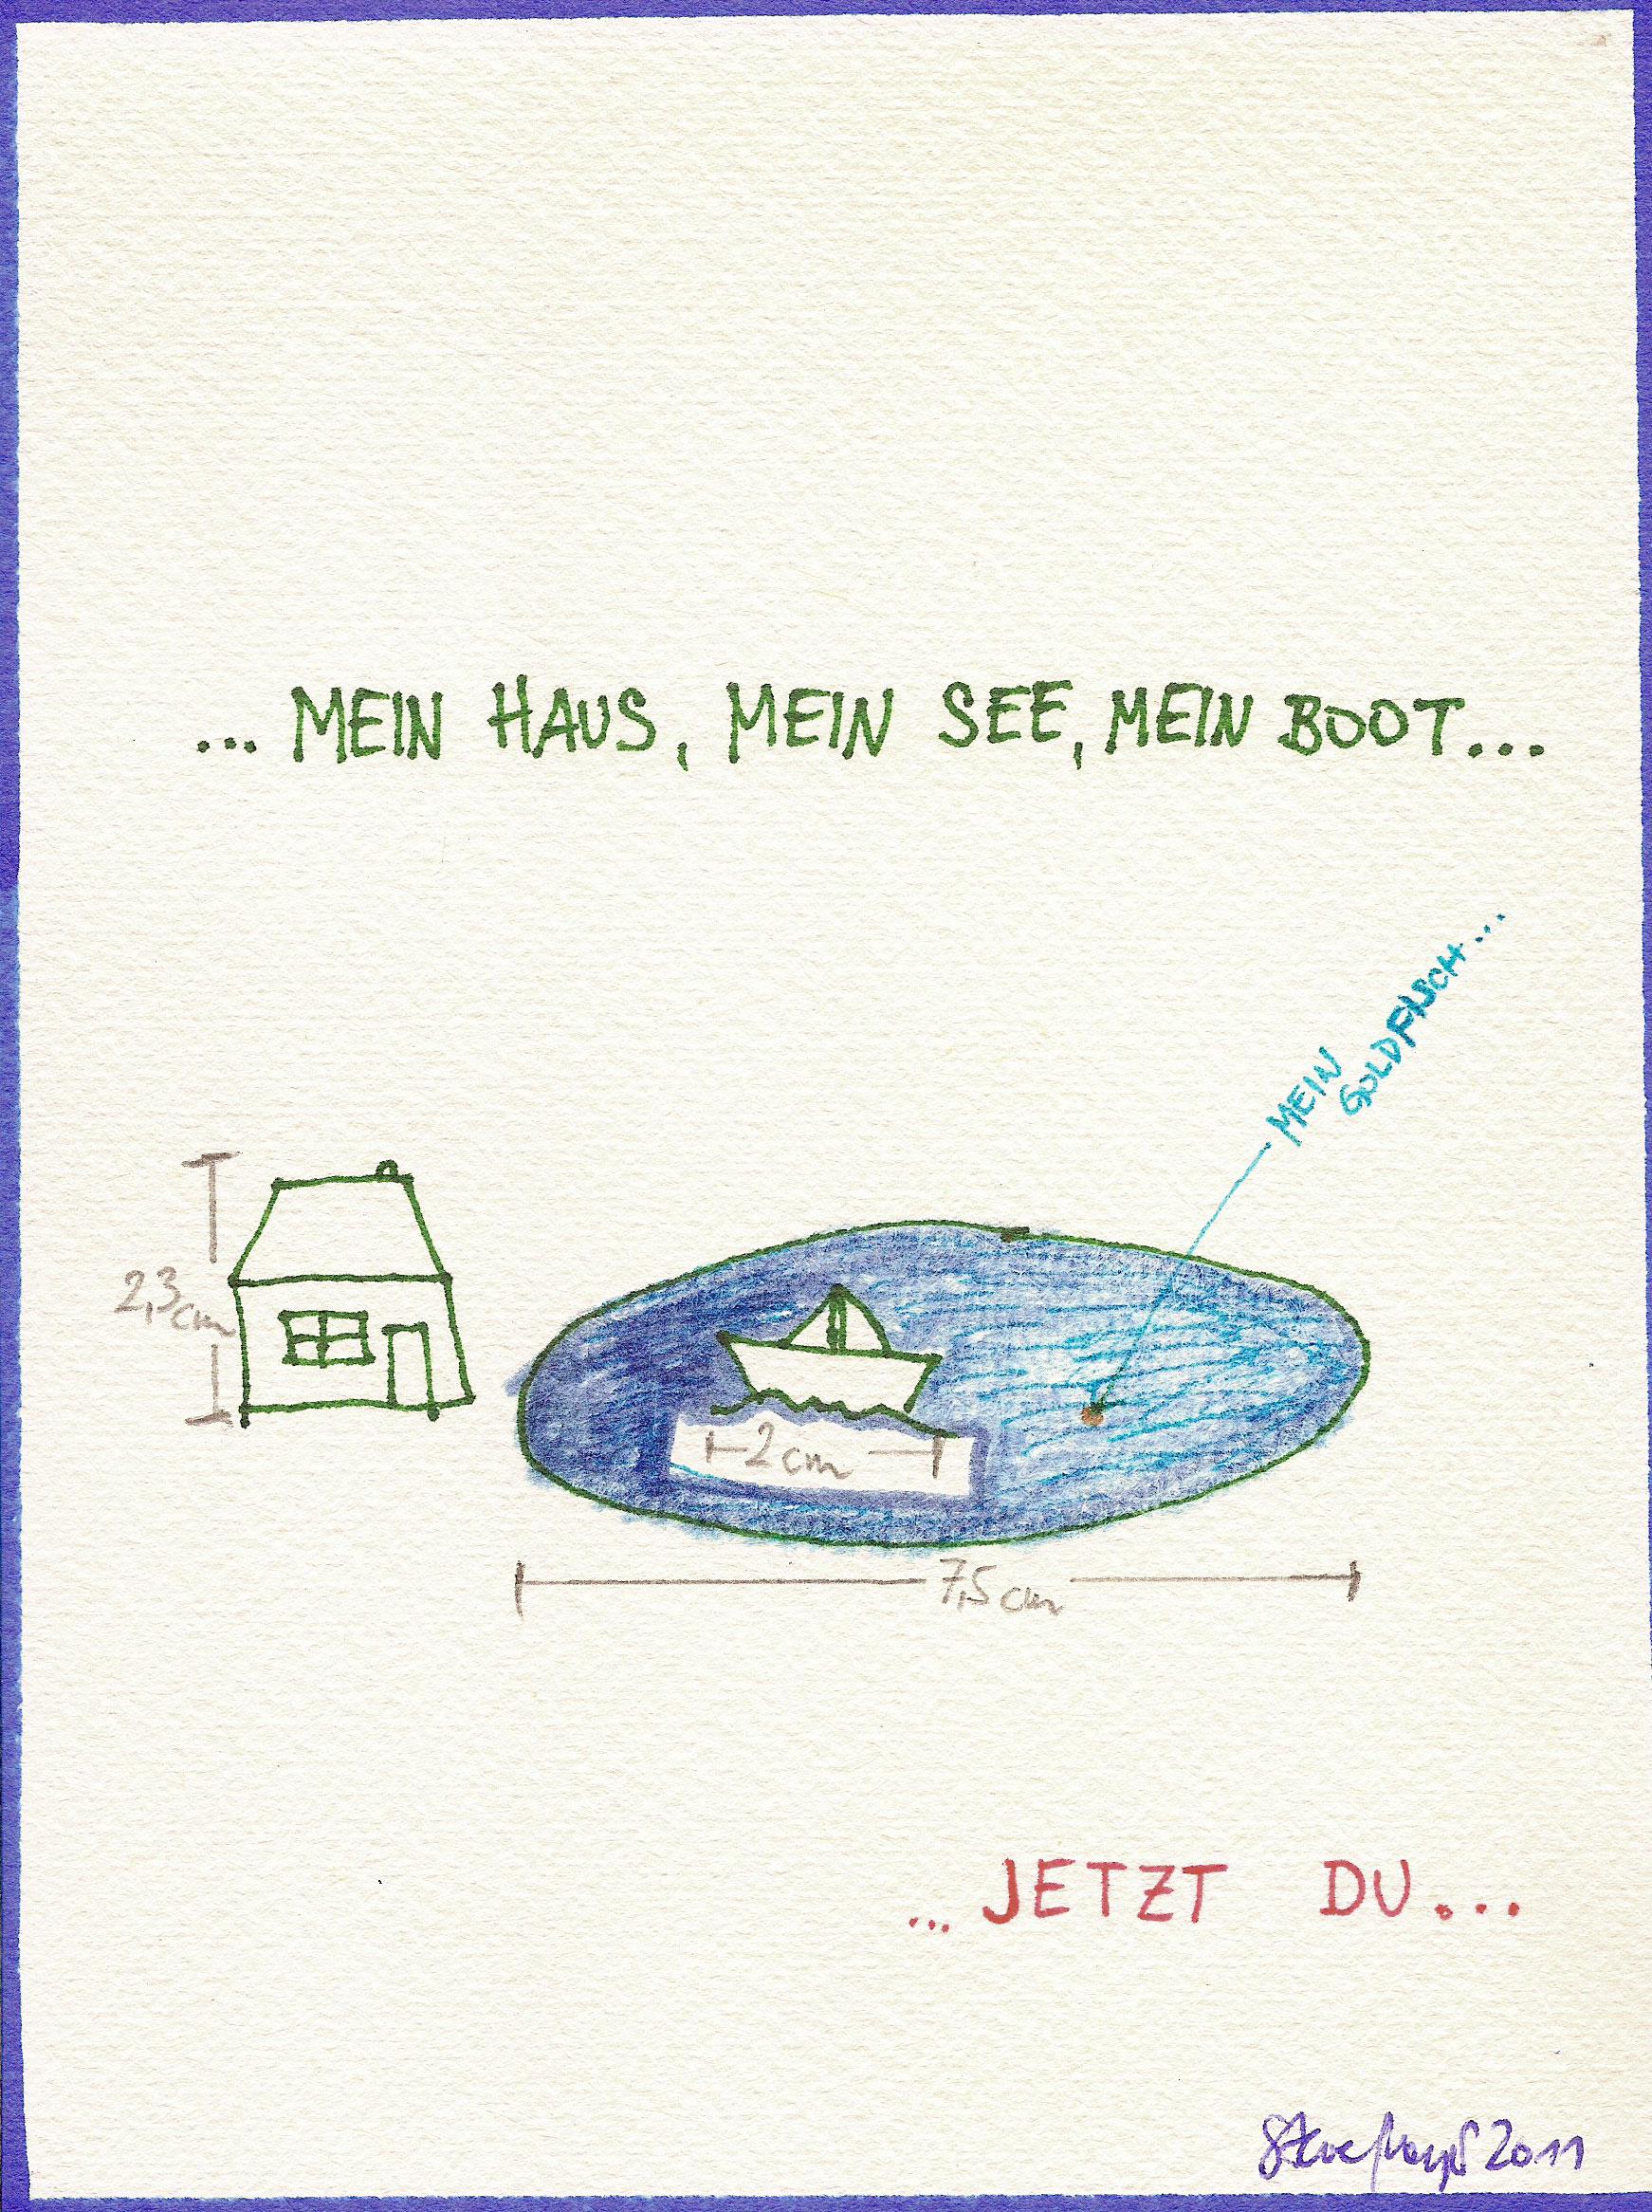 ... MEIN HAUS, MEIN SEE, MEIN BOOT...
MEIN
GOLDFISCH...
2,3cm
2cm
7,5cm
... JETZT DU...
2011